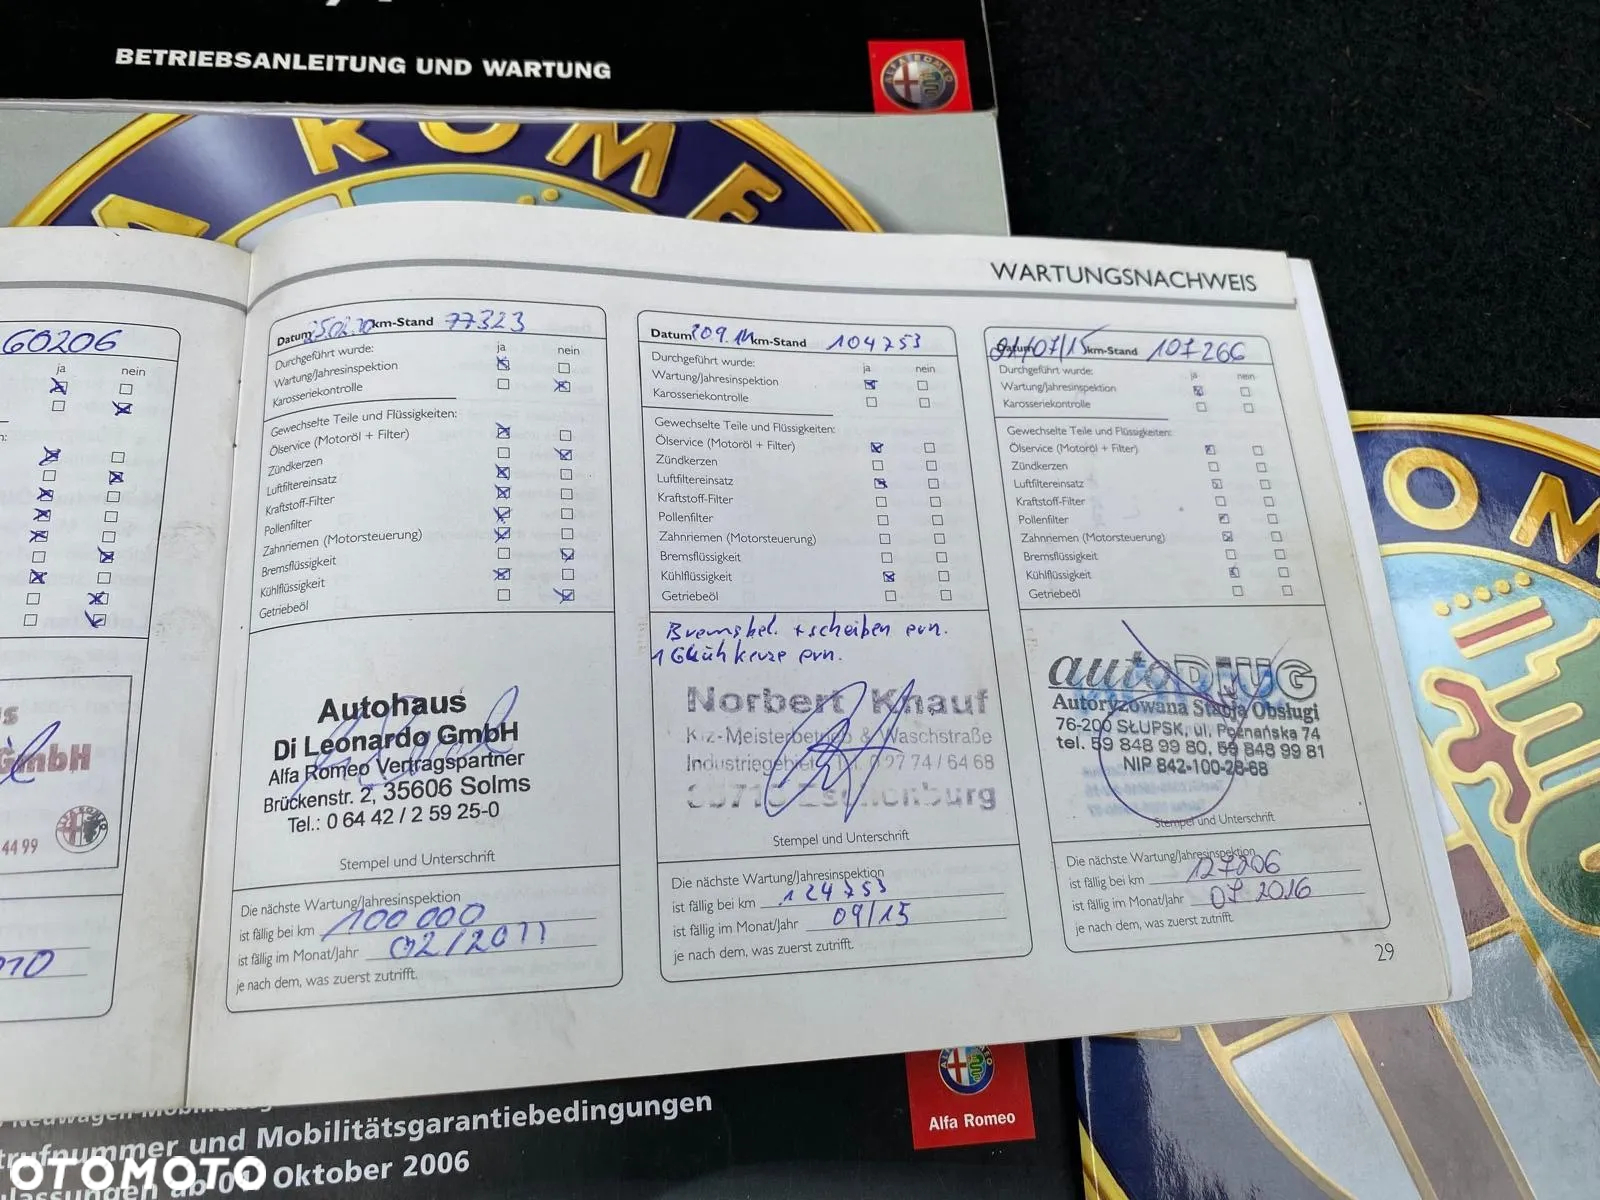 BETRIEBSANLEITUNG UND WARTUNG
ALFA ROMEO
A ROME
WARTUNGSNACHWEIS
60206
ja nein
GmbH
44 99
Datum 25.02.10 km-Stand 77323
Durchgeführt wurde: ja nein
Wartung/Jahresinspektion
Karosseriekontrolle
Gewechselte Teile und Flüssigkeiten:
Ölservice (Motoröl + Filter)
Zündkerzen
Luftfiltereinsatz
Kraftstoff-Filter
Pollenfilter
Zahnriemen (Motorsteuerung)
Bremsflüssigkeit
Kühlflüssigkeit
Getriebeöl
Autohaus
Di Leonardo GmbH
Alfa Romeo Vertragspartner
Brückenstr. 2, 35606 Solms
Tel.: 0 64 42 / 2 59 25-0
Stempel und Unterschrift
Die nächste Wartung/Jahresinspektion
ist fällig bei km 100 000
ist fällig im Monat/Jahr 02/2011
je nach dem, was zuerst zutrifft.
Datum km-Stand 104753
Durchgeführt wurde: ja nein
Wartung/Jahresinspektion
Karosseriekontrolle
Gewechselte Teile und Flüssigkeiten:
Ölservice (Motoröl + Filter)
Zündkerzen
Luftfiltereinsatz
Kraftstoff-Filter
Pollenfilter
Zahnriemen (Motorsteuerung)
Bremsflüssigkeit
Kühlflüssigkeit
Getriebeöl
Bremsbel. + scheiben ern.
1 Glühkerze ern.
Norbert Knauf
Kfz-Meisterbetrieb & Waschstraße
Industriegebiet Tel. 0 27 74 / 64 68
Eschenburg
Stempel und Unterschrift
Die nächste Wartung/Jahresinspektion
ist fällig bei km 124753
ist fällig im Monat/Jahr 09/15
je nach dem, was zuerst zutrifft.
Datum 01/07/15 km-Stand 107266
Durchgeführt wurde: ja nein
Wartung/Jahresinspektion
Karosseriekontrolle
Gewechselte Teile und Flüssigkeiten:
Ölservice (Motoröl + Filter)
Zündkerzen
Luftfiltereinsatz
Kraftstoff-Filter
Pollenfilter
Zahnriemen (Motorsteuerung)
Bremsflüssigkeit
Kühlflüssigkeit
Getriebeöl
autoDIUG
Autoryzowana Stacja Obsługi
76-200 SŁUPSK, ul. Poznańska 74
tel. 59 848 99 80, 59 848 99 81
NIP 842-100-28-68
Stempel und Unterschrift
Die nächste Wartung/Jahresinspektion
ist fällig bei km 127206
ist fällig im Monat/Jahr 07 2016
je nach dem, was zuerst zutrifft.
29
OM
und Mobilitätsgarantiebedingungen
Oktober 2006
Alfa Romeo
OTOMOTO